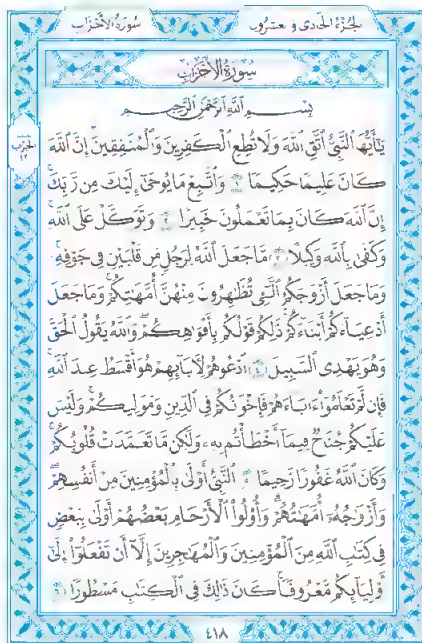 الجزء الحادي و عشرون سورة الأحزاب
سورة الأحزاب
بسم الله الرحمن الرحيم
نصف
الحزب
٤٢
يَٰٓأَيُّهَا ٱلنَّبِيُّ ٱتَّقِ ٱللَّهَ وَلَا تُطِعِ ٱلْكَٰفِرِينَ وَٱلْمُنَٰفِقِينَ إِنَّ ٱللَّهَ
كَانَ عَلِيمًا حَكِيمًا ١ وَٱتَّبِعْ مَا يُوحَىٰٓ إِلَيْكَ مِن رَّبِّكَ
إِنَّ ٱللَّهَ كَانَ بِمَا تَعْمَلُونَ خَبِيرًا ٢ وَتَوَكَّلْ عَلَى ٱللَّهِ
وَكَفَىٰ بِٱللَّهِ وَكِيلًا ٣ مَّا جَعَلَ ٱللَّهُ لِرَجُلٍ مِّن قَلْبَيْنِ فِى جَوْفِهِۦ
وَمَا جَعَلَ أَزْوَٰجَكُمُ ٱلَّٰٓـِٔى تُظَٰهِرُونَ مِنْهُنَّ أُمَّهَٰتِكُمْ وَمَا جَعَلَ
أَدْعِيَآءَكُمْ أَبْنَآءَكُمْ ذَٰلِكُمْ قَوْلُكُم بِأَفْوَٰهِكُمْ وَٱللَّهُ يَقُولُ ٱلْحَقَّ
وَهُوَ يَهْدِى ٱلسَّبِيلَ ٤ ٱدْعُوهُمْ لِءَابَآئِهِمْ هُوَ أَقْسَطُ عِندَ ٱللَّهِ
فَإِن لَّمْ تَعْلَمُوٓا۟ ءَابَآءَهُمْ فَإِخْوَٰنُكُمْ فِى ٱلدِّينِ وَمَوَٰلِيكُمْ وَلَيْسَ
عَلَيْكُمْ جُنَاحٌ فِيمَآ أَخْطَأْتُم بِهِۦ وَلَٰكِن مَّا تَعَمَّدَتْ قُلُوبُكُمْ
وَكَانَ ٱللَّهُ غَفُورًا رَّحِيمًا ٥ ٱلنَّبِيُّ أَوْلَىٰ بِٱلْمُؤْمِنِينَ مِنْ أَنفُسِهِمْ
وَأَزْوَٰجُهُۥٓ أُمَّهَٰتُهُمْ وَأُو۟لُوا۟ ٱلْأَرْحَامِ بَعْضُهُمْ أَوْلَىٰ بِبَعْضٍ
فِى كِتَٰبِ ٱللَّهِ مِنَ ٱلْمُؤْمِنِينَ وَٱلْمُهَٰجِرِينَ إِلَّآ أَن تَفْعَلُوٓا۟ إِلَىٰٓ
أَوْلِيَآئِكُم مَّعْرُوفًا كَانَ ذَٰلِكَ فِى ٱلْكِتَٰبِ مَسْطُورًا ٦
٤١٨